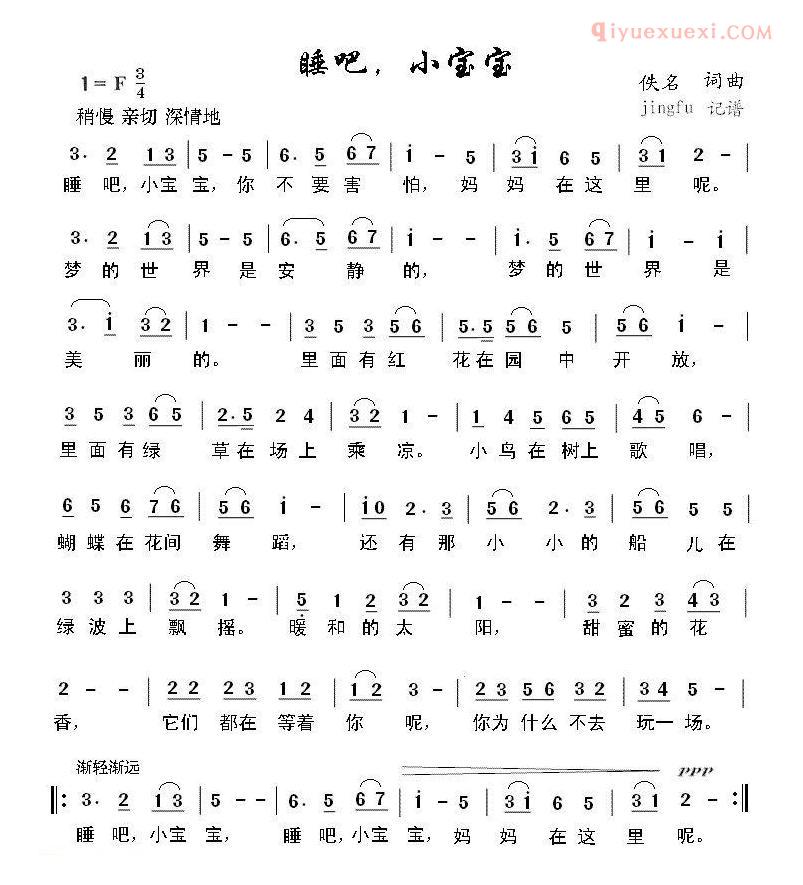 qiyuexuexi.com
睡吧，小宝宝
1=F 3/4
佚名 词曲
稍慢 亲切 深情地
jingfu 记谱
3. 2 1 3 | 5 - 5 | 6. 5 6 7 | i - 5 | 3 i 6 5 | 3 1 2 - |
睡吧，小宝宝，你不要害怕，妈妈在这里呢。
3. 2 1 3 | 5 - 5 | 6. 5 6 7 | i - - | i. 5 6 7 | i - i |
梦的世界是安静的，梦的世界是
3. i 3 2 | 1 - - | 3 5 3 5 6 | 5. 5 5 6 5 | 5 6 i - |
美丽的。里面有红花在园中开放，
3 5 3 6 5 | 2. 5 2 4 | 3 2 1 - | 1 4 5 5 6 | 4 5 6 - |
里面有绿草在场上乘凉。小鸟在树上歌唱，
6 5 5 7 6 | 5 6 i - | i 0 2. 3 | 5 6 2. 3 | 5 6 5 5 |
蝴蝶在花间舞蹈，还有那小小的船儿在
3 3 3 | 3 2 1 - | 5 1 2 3 2 | 6 - - | 3 2 3 4 3 |
绿波上飘摇。暖和的太阳，甜蜜的花
2 - - | 2 2 2 3 1 2 | 1 2 3 - | 2 3 5 6 3 2 | 3 4 5 - |
香，它们都在等着你呢，你为什么不去玩一场。
渐轻渐远
ppp
‖: 3. 2 1 3 | 5 - - | 6. 5 6 7 | i - 5 | 3 i 6 5 | 3 1 2 - :‖
睡吧，小宝宝，睡吧，小宝宝，妈妈在这里呢。